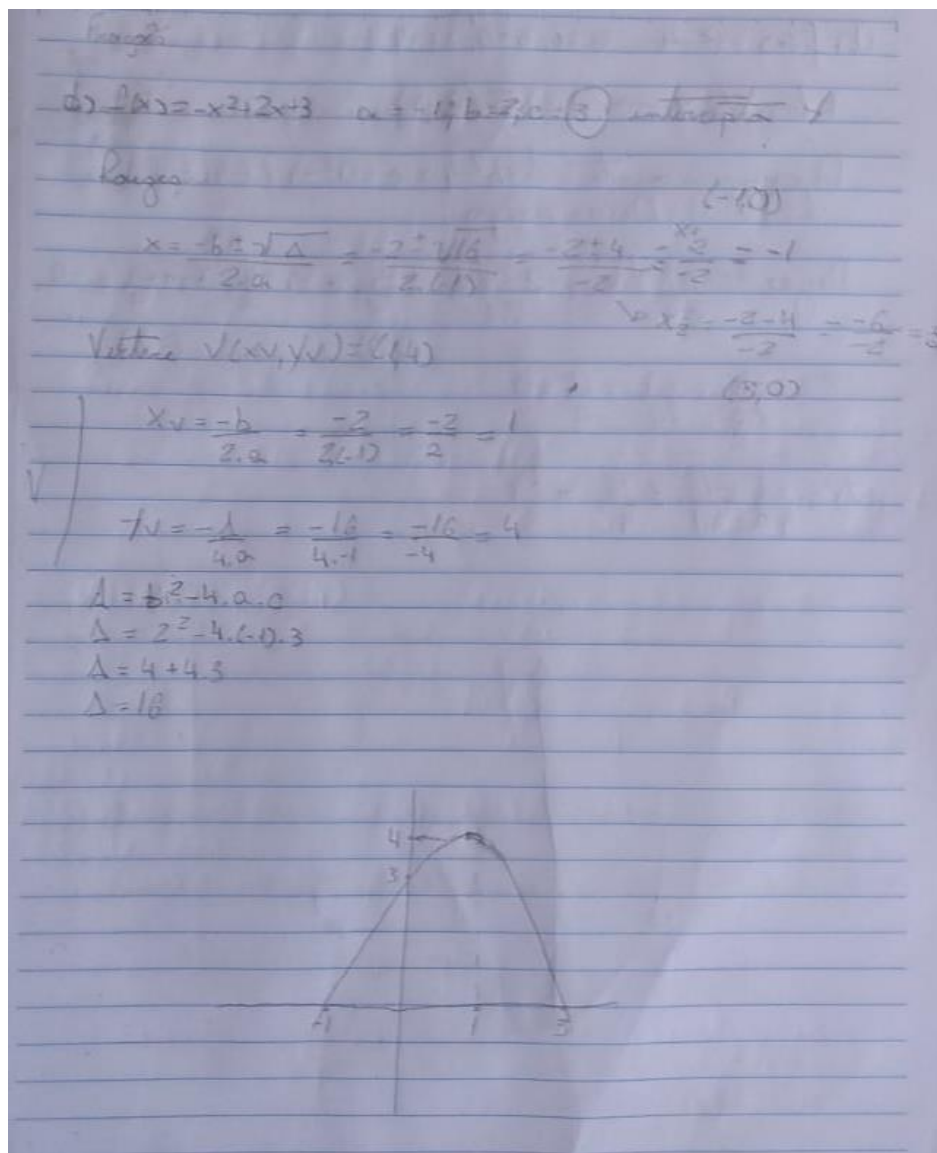 d) f(x) = -x²+2x+3 a = -1, b=2, c=3 intercepta Y
Raízes
(-1,0)
x = -b ± √Δ / 2.a = -2 ± √16 / 2.(-1) = -2 ± 4 / -2 = 2 / -2 = -1
x₂ = -2-4 / -2 = -6 / -2 = 3
Vértice V(xv, yv) = (1,4)
(3,0)
xv = -b / 2.a = -2 / 2.(-1) = -2 / 2 = 1
V
Yv = -Δ / 4.a = -16 / 4.-1 = -16 / -4 = 4
Δ = b²-4.a.c
Δ = 2²-4.(-1).3
Δ = 4+4.3
Δ = 16
4
3
-1 1 3